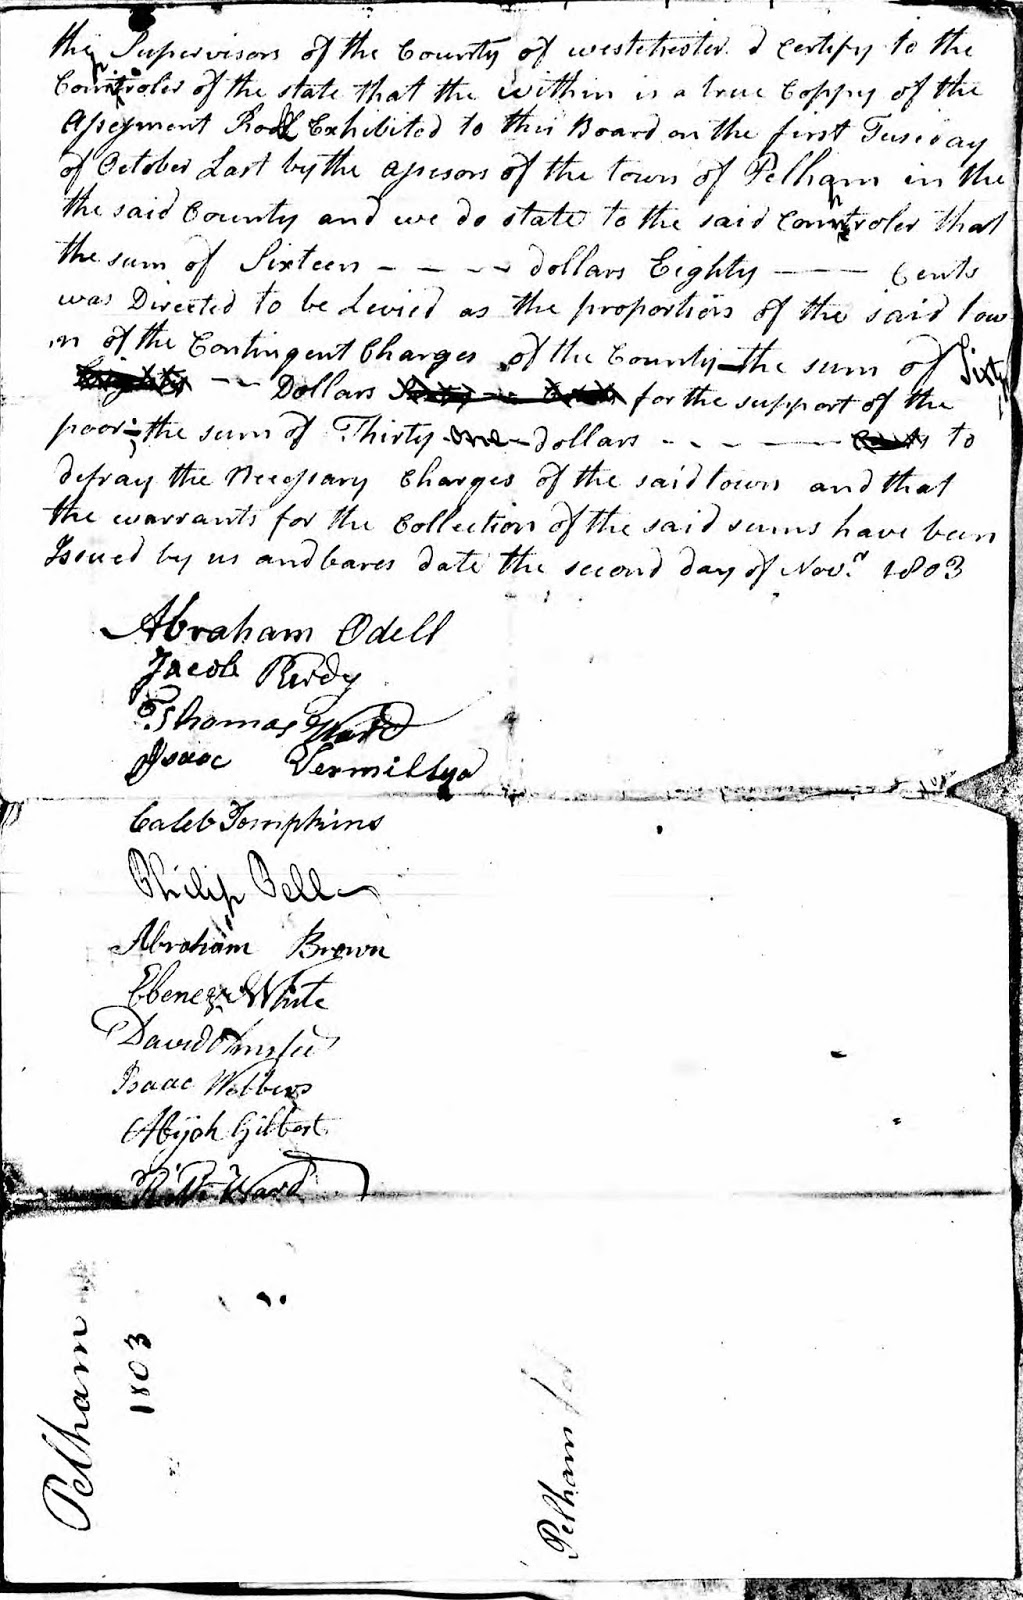 the Supervisors of the County of westchester d Certify to the
Comtroler of the state that the within is a true Coppy of the
Assesment Roll Exhibited to this Board on the first Tuesday
of October Last by the assesors of the town of Pelham in the
the said County and we do state to the said Comtroler that
the sum of Sixteen - - - - dollars Eighty --- Cents
was Directed to be Levied as the proportion of the said tow
n of the Contingent Charges of the County - the sum of Sixty
Eighty - - Dollars for the support of the
poor - the sum of Thirty one dollars - - - - - Cents to
defray the Necessary Charges of the said town and that
the warrants for the Collection of the said sums have been
Issued by us and bares date the second day of Nov.r 1803
Abraham Odell
Jacob Purdy
Thomas Ward
Isaac Vermillya
Caleb Tompkins
Philip Pell
Abraham Brown
Ebenezer White
David
Isaac
Abijah Gilbert
Ward
Pelham
1803
Pelham